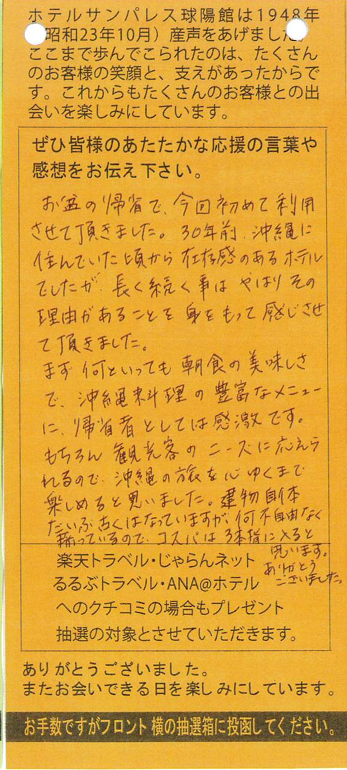 ホテルサンパレス球陽館は1948年
昭和23年10月）産声をあげました
ここまで歩んでこられたのは、たくさん
のお客様の笑顔と、支えがあったからで
す。これからもたくさんのお客様との出
会いを楽しみにしています。
ぜひ皆様のあたたかな応援の言葉や
感想をお伝え下さい。
お盆の帰省で、今回初めて利用
させて頂きました。30年前、沖縄に
住んでいた頃から存在感のあるホテル
でしたが、長く続く事は やはりその
理由があることを身をもって感じさせ
て頂きました。
まず何といっても朝食の美味しさ
で、沖縄料理の豊富なメニュー
に、帰省者としては感激です。
もちろん観光客のニーズに応えら
れるので、沖縄の旅を心ゆくまで
楽しめると思いました。建物自体
だいぶ古くはなっていますが、何不自由なく
揃っているので、コスパは 入ると
思います。
ありがとう
ございました。
楽天トラベル・じゃらんネット
るるぶトラベル・ANA@ホテル
へのクチコミの場合もプレゼント
抽選の対象とさせていただきます。
ありがとうございました。
またお会いできる日を楽しみにしています。
お手数ですがフロント横の抽選箱に投函してください。